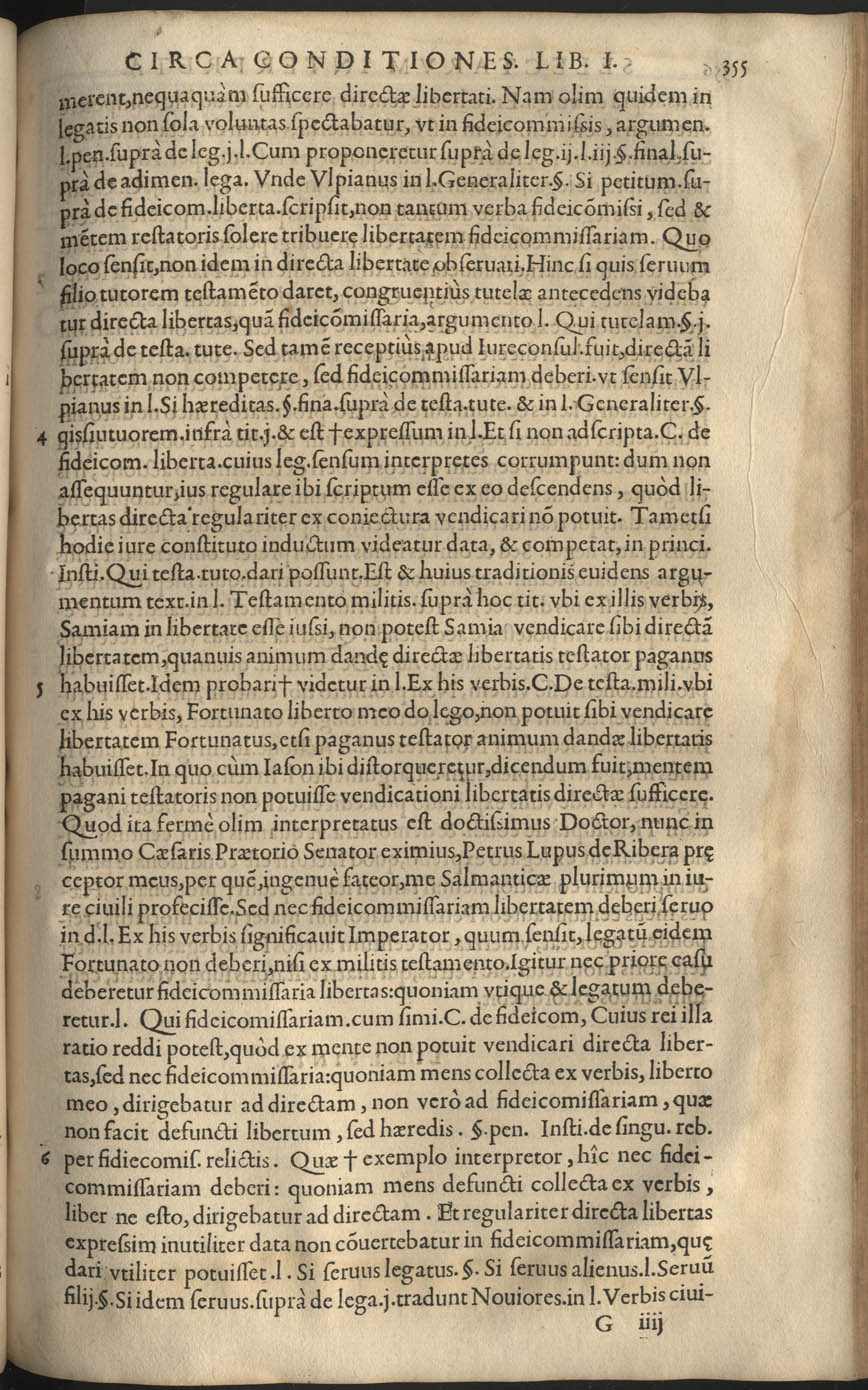 CIRCA CONDITIONES. LIB. I. 355
merent,nequaquàm ſufficere directæ libertati. Nam olim quidem in
legatis non ſola voluntas ſpectabatur, vt in fideicommiſsis, argumen.
l.pen.ſuprà de leg.j.l.Cum proponeretur ſuprà de leg.ij.l.iij.§.final.ſu-
prà de adimen. lega. Vnde Vlpianus in l.Generaliter.§. Si petitum.ſu-
prà de fideicom.liberta.ſcripſit,non tantum verba fideicōmiſsi, ſed &
mētem teſtatoris ſolere tribuere libertatem fideicommiſſariam. Quo
loco ſenſit,non idem in directa libertate obſeruati.Hinc ſi quis ſeruum
filio tutorem teſtamēto daret, congruentiùs tutelæ antecedens videba
tur directa libertas,quā fideicōmiſſaria,argumento l. Qui tutelam.§.j.
ſuprà de teſta. tute. Sed tamē receptiùs apud Iureconſul.fuit,directā li
bertatem non competere, ſed fideicommiſſariam deberi.vt ſenſit Vl-
pianus in l.Si hæreditas.§.fina.ſuprà de teſta.tute. & in l. Generaliter.§.
4 qisſiutuorem.infrà tit.j.& eſt †expreſſum in l.Et ſi non adſcripta.C. de
fideicom. liberta.cuius leg.ſenſum interpretes corrumpunt: dum non
aſſequuntur,ius regulare ibi ſcriptum eſſe ex eo deſcendens, quòd li-
bertas directa regulariter ex coniectura vendicari nō potuit. Tametſi
hodie iure conſtituto inductum videatur data, & competat, in princi.
Inſti.Qui teſta.tuto.dari poſſunt.Eſt & huius traditionis euidens argu-
mentum text.in l. Teſtamento militis. ſuprà hoc tit. vbi ex illis verbis,
Samiam in libertate eſſe iuſsi, non poteſt Samia vendicare ſibi directā
libertatem,quanuis animum dandę directæ libertatis teſtator paganus
5 habuiſſet.Idem probari† videtur in l.Ex his verbis.C.De teſta.mili.vbi
ex his verbis, Fortunato liberto meo do lego,non potuit ſibi vendicare
libertatem Fortunatus,etſi paganus teſtator animum dandæ libertatis
habuiſſet.In quo cùm Iaſon ibi diſtorqueretur,dicendum fuit,mentem
pagani teſtatoris non potuiſſe vendicationi libertatis directæ ſufficere.
Quod ita fermè olim interpretatus eſt doctiſsimus Doctor, nunc in
ſummo Cæſaris Prætorio Senator eximius,Petrus Lupus de Ribera prę
ceptor meus,per quē,ingenuè fateor,me Salmanticæ plurimum in iu-
re ciuili profeciſſe.Sed nec fideicommiſſariam libertatem deberi ſeruo
in d.l. Ex his verbis ſignificauit Imperator, quum ſenſit, legatū eidem
Fortunato non deberi,niſi ex militis teſtamento.Igitur nec priore caſu
deberetur fideicommiſſaria libertas:quoniam vtique & legatum debe-
retur.l. Qui fideicomiſſariam.cum ſimi.C. de fideicom, Cuius rei illa
ratio reddi poteſt,quòd ex mente non potuit vendicari directa liber-
tas,ſed nec fideicommiſſaria:quoniam mens collecta ex verbis, liberto
meo, dirigebatur ad directam, non verò ad fideicomiſſariam, quæ
non facit defuncti libertum, ſed hæredis. §.pen. Inſti.de ſingu. reb.
6 per fidiecomiſ. relictis. Quæ † exemplo interpretor, hîc nec fidei-
commiſſariam deberi: quoniam mens defuncti collecta ex verbis,
liber ne eſto, dirigebatur ad directam. Et regulariter directa libertas
expreſsim inutiliter data non cōuertebatur in fideicommiſſariam,quę
dari vtiliter potuiſſet.l. Si ſeruus legatus.§. Si ſeruus alienus.l.Seruū
filij.§.Si idem ſeruus.ſuprà de lega.j.tradunt Nouiores.in l.Verbis ciui-
G iiij